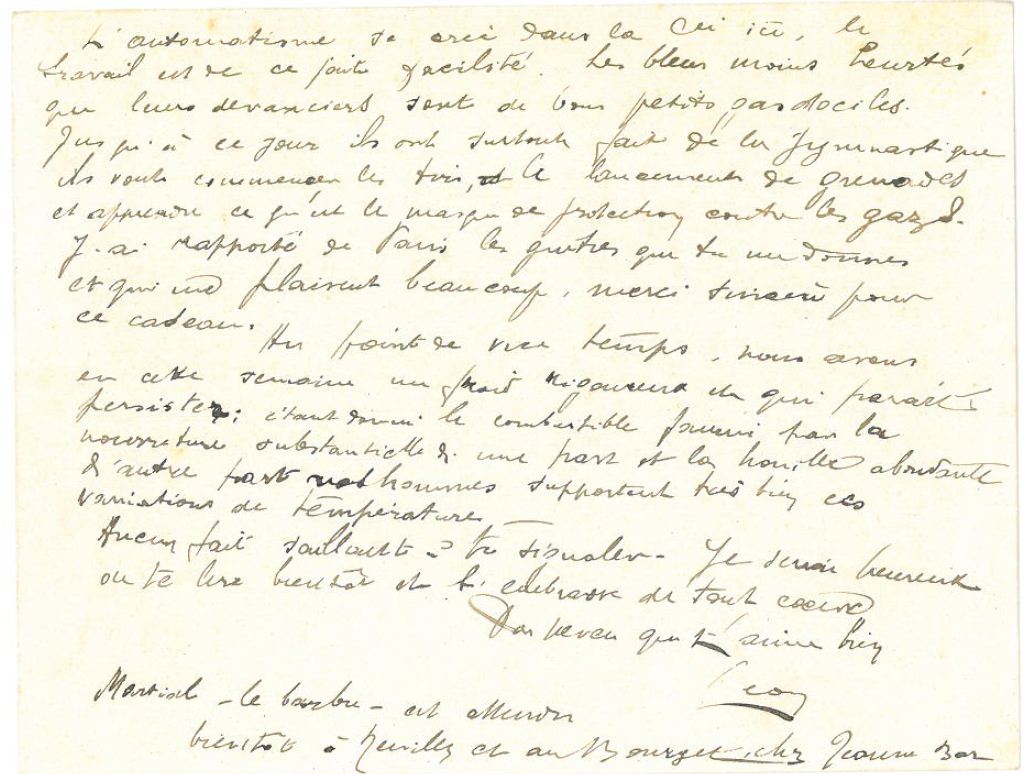 L'automatisme se crée dans la Cie ici, le
travail est de ce fait facilité. Les bleus moins heurtés
que leurs devanciers sont de bons petits gas dociles.
Jusqu'à ce jour ils ont surtout fait de la gymnastique
ils vont commencer les tirs, et le lancement de grenades
et apprendre ce qu'est le masque de protection contre les gaz.
J'ai rapporté de Paris les guêtres que tu me donnes
et qui me plaisent beaucoup, merci sincère pour
ce cadeau.
Au point de vue temps, nous avons
en cette semaine un froid rigoureux et qui paraît
persister; étant donné le combustible fourni par la
nourriture substantielle d'une part et la houille abondante
d'autre part nos hommes supportent très bien ces
variations de température
Aucun fait saillant à te signaler - Je serai heureux
de te lire bientôt et t'embrasse de tout coeur
Ton neveu qui t'aime bien
Léon
Martial - le barbu - est attendu
bientôt à Neuilly et au Bourget chez Jeanne